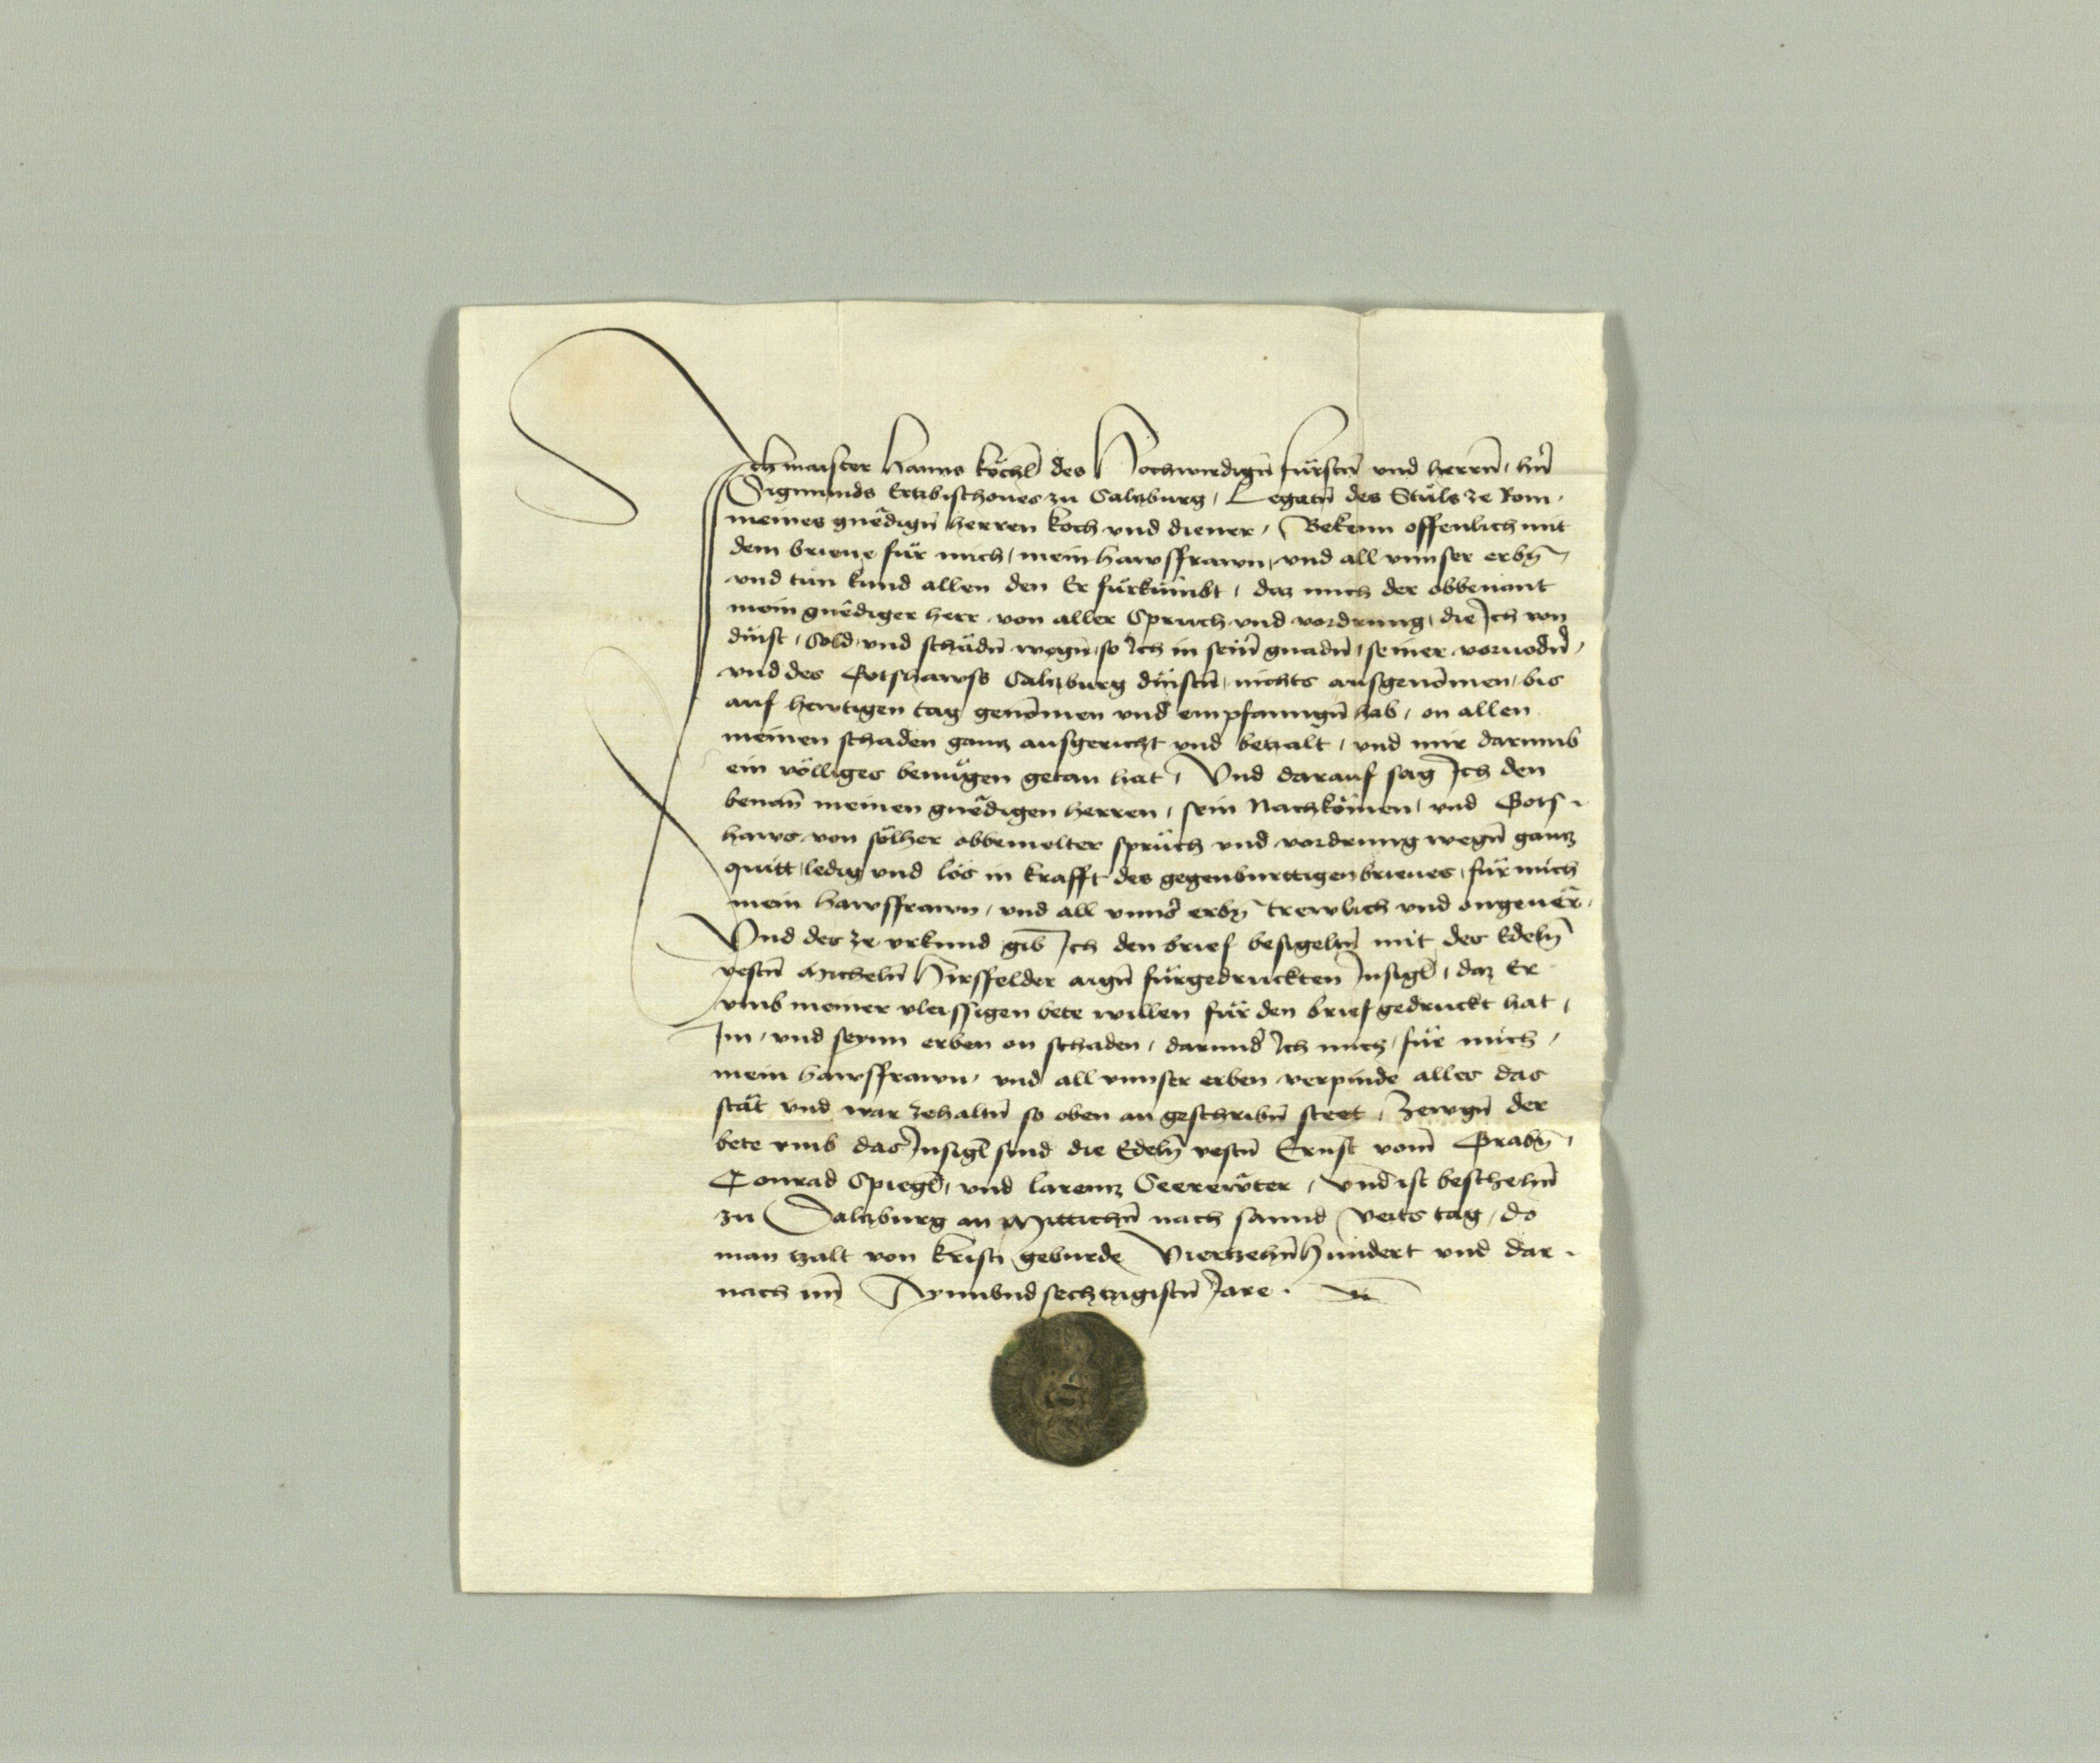 Ich maister Hanns köchl̄ des Hochwirdign̄ fürstn̄ vnd herrn̄, hn̄
Sigmunds Ertzbischoues zu Saltzburg, Legatn̄ des Stuls ze Rom,
meines gnědign̄ herren koch vnd diener, Bekenn offenlich mit
dem brieue für mich, mein hawsfrawn, vnd all vnnser erbn̄,
vnd tun kund allen den Er fürkumbt, daz mich der obbenant
mein gnědiger herr von aller Spruch vnd vordrung, die Ich von
dinst, Sold, vnd schädn̄ wegn̄, so Ich in sein̄ gnadn̄, seiner voruodn̄,
vnd des Gotshawss Saltzburg dinstn̄, nichts ausgenōmen, bis
auf hewtigen tag genōmen vnd empfanngn̄ hab, on allen
meinen schaden gantz ausgericht vnd betzalt, vnd mir darumb
ein völligs benugen getan hat, Vnd darauf sag Ich den
benan̄ meinen gnědigen herren, sein Nachkömen, vnd Gots-
haws von sölher obbemelter sprüch vnd vordrung wegn̄ gantz
quitt, ledig vnd los in krafft des gegenburttigen brieues, für mich
mein hawsfrawn, vnd all vnns̄ erbn̄ trewlich vnd ongeuěr,
Vnd des ze vrkund gib Ich den brief besigeltn̄ mit des Edeln̄
vestn̄ Micheln̄ Hirsfelder aign̄ fürgedruckten Insigl̄, daz Er
vmb meiner vleissigen bete willen für den brief gedruckt hat,
Im, vnd seynn erben on schaden, darund̄ Ich mich, für mich,
mein hawsfrawn, vnd all vnnser erben verpinde alles das
stät vnd war zehaltn̄ so oben an geschribn̄ steet, Zewgn̄ der
bete vmb das Insigl sind die Edeln̄ vestn̄ Ernst vom̄ Grabn̄,
Conrad Spiegl̄, vnd larentz Seerewter, Vnd ist beschehn̄
zu Saltzburg an Mittichn̄ nach sannd Veits tag, do
man tzalt von kristi geburde Viertzehn̄hundert vnd dar-
nach im̄ Aynvndsechtzigistn̄ Jare.